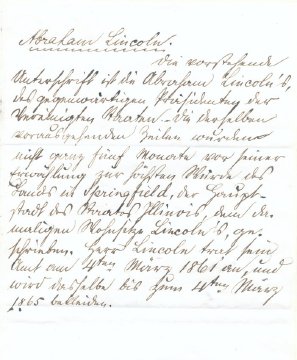 Abraham Lincoln.
Die vorstehende
Unterschrift ist die Abraham Lincoln's,
des gegenwärtigen Präsidenten der
Vereinigten Staaten. Die derselben
vorausgehenden Zeilen wurden
nicht ganz fünf Monate vor seiner
Erwählung zur höchsten Würde des
Landes in Springfield, der Haupt-
stadt des Staates Illinois, dem da-
maligen Wohnsitze Lincoln's ge-
schrieben. Herr Lincoln trat sein
Amt am 4ten März 1861 an, und
wird dasselbe bis zum 4ten März
1865 bekleiden.